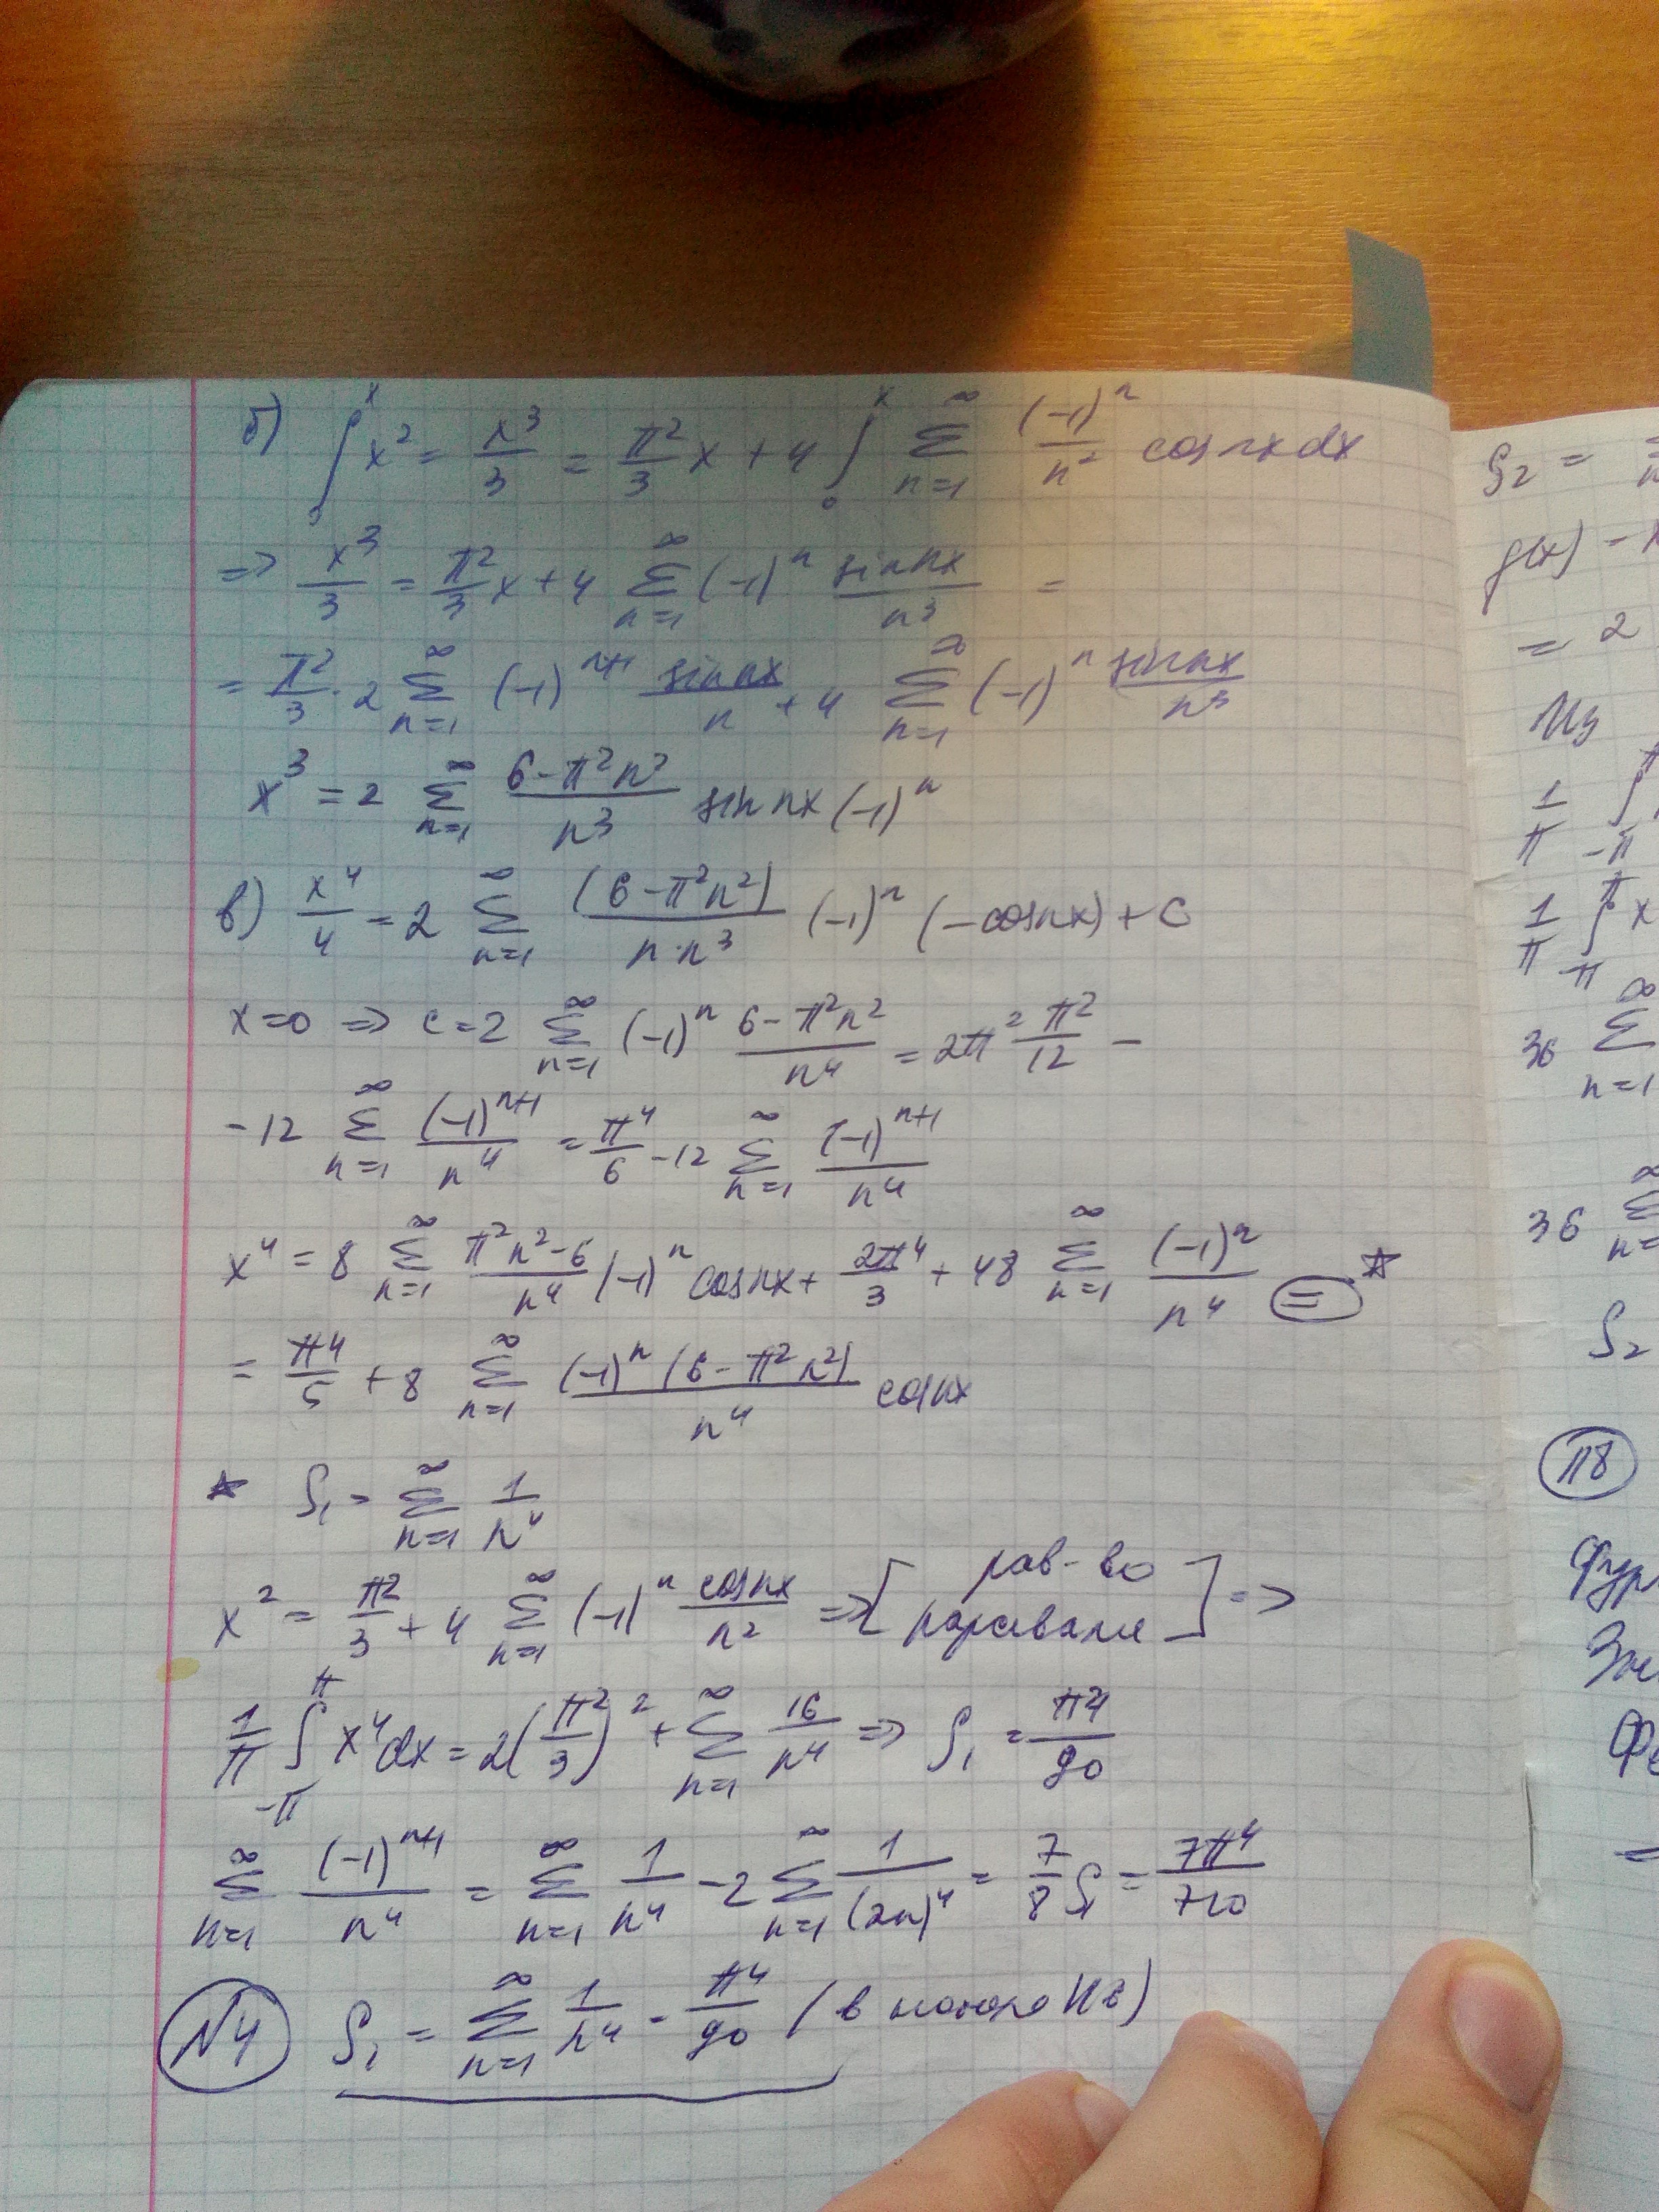 б) ∫₀ˣ x² = x³/3 = π²/3 x + 4 ∫₀ˣ ∑_{n=1}^∞ (-1)ⁿ/n² cos nx dx
=> x³/3 = π²/3 x + 4 ∑_{n=1}^∞ (-1)ⁿ sin nx/n³ =
= π²/3 · 2 ∑_{n=1}^∞ (-1)ⁿ⁺¹ sin nx/n + 4 ∑_{n=1}^∞ (-1)ⁿ sin nx/n³
x³ = 2 ∑_{n=1}^∞ (6-π²n²)/n³ sin nx (-1)ⁿ
в) x⁴/4 = 2 ∑_{n=1}^∞ (6-π²n²)/(n·n³) (-1)ⁿ (-cos nx) + C
x=0 => C=2 ∑_{n=1}^∞ (-1)ⁿ (6-π²n²)/n⁴ = 2π² π²/12 -
-12 ∑_{n=1}^∞ (-1)ⁿ⁺¹/n⁴ = π⁴/6 - 12 ∑_{n=1}^∞ (-1)ⁿ⁺¹/n⁴
x⁴ = 8 ∑_{n=1}^∞ (π²n²-6)/n⁴ (-1)ⁿ cos nx + 2π⁴/3 + 48 ∑_{n=1}^∞ (-1)ⁿ/n⁴ = ☆
= π⁴/5 + 8 ∑_{n=1}^∞ (-1)ⁿ(6-π²n²)/n⁴ cos nx
☆ S₁ = ∑_{n=1}^∞ 1/n⁴
x² = π²/3 + 4 ∑_{n=1}^∞ (-1)ⁿ cos nx/n² => [рав-во Парсеваля] =>
1/π ∫_{-π}^{π} x⁴dx = 2(π²/3)² + ∑_{n=1}^∞ 16/n⁴ => S₁ = π⁴/90
∑_{n=1}^∞ (-1)ⁿ⁺¹/n⁴ = ∑_{n=1}^∞ 1/n⁴ - 2∑_{n=1}^∞ 1/(2n)⁴ = 7/8 S₁ = 7π⁴/720
N4 S₁ = ∑_{n=1}^∞ 1/n⁴ = π⁴/90 (в
S₂ =
g(x) -
= 2
Из
1/π ∫_{-π}^{π}
1/π ∫_{-π}^{π} x
36 ∑_{n=1}^∞
36
S₂
П8